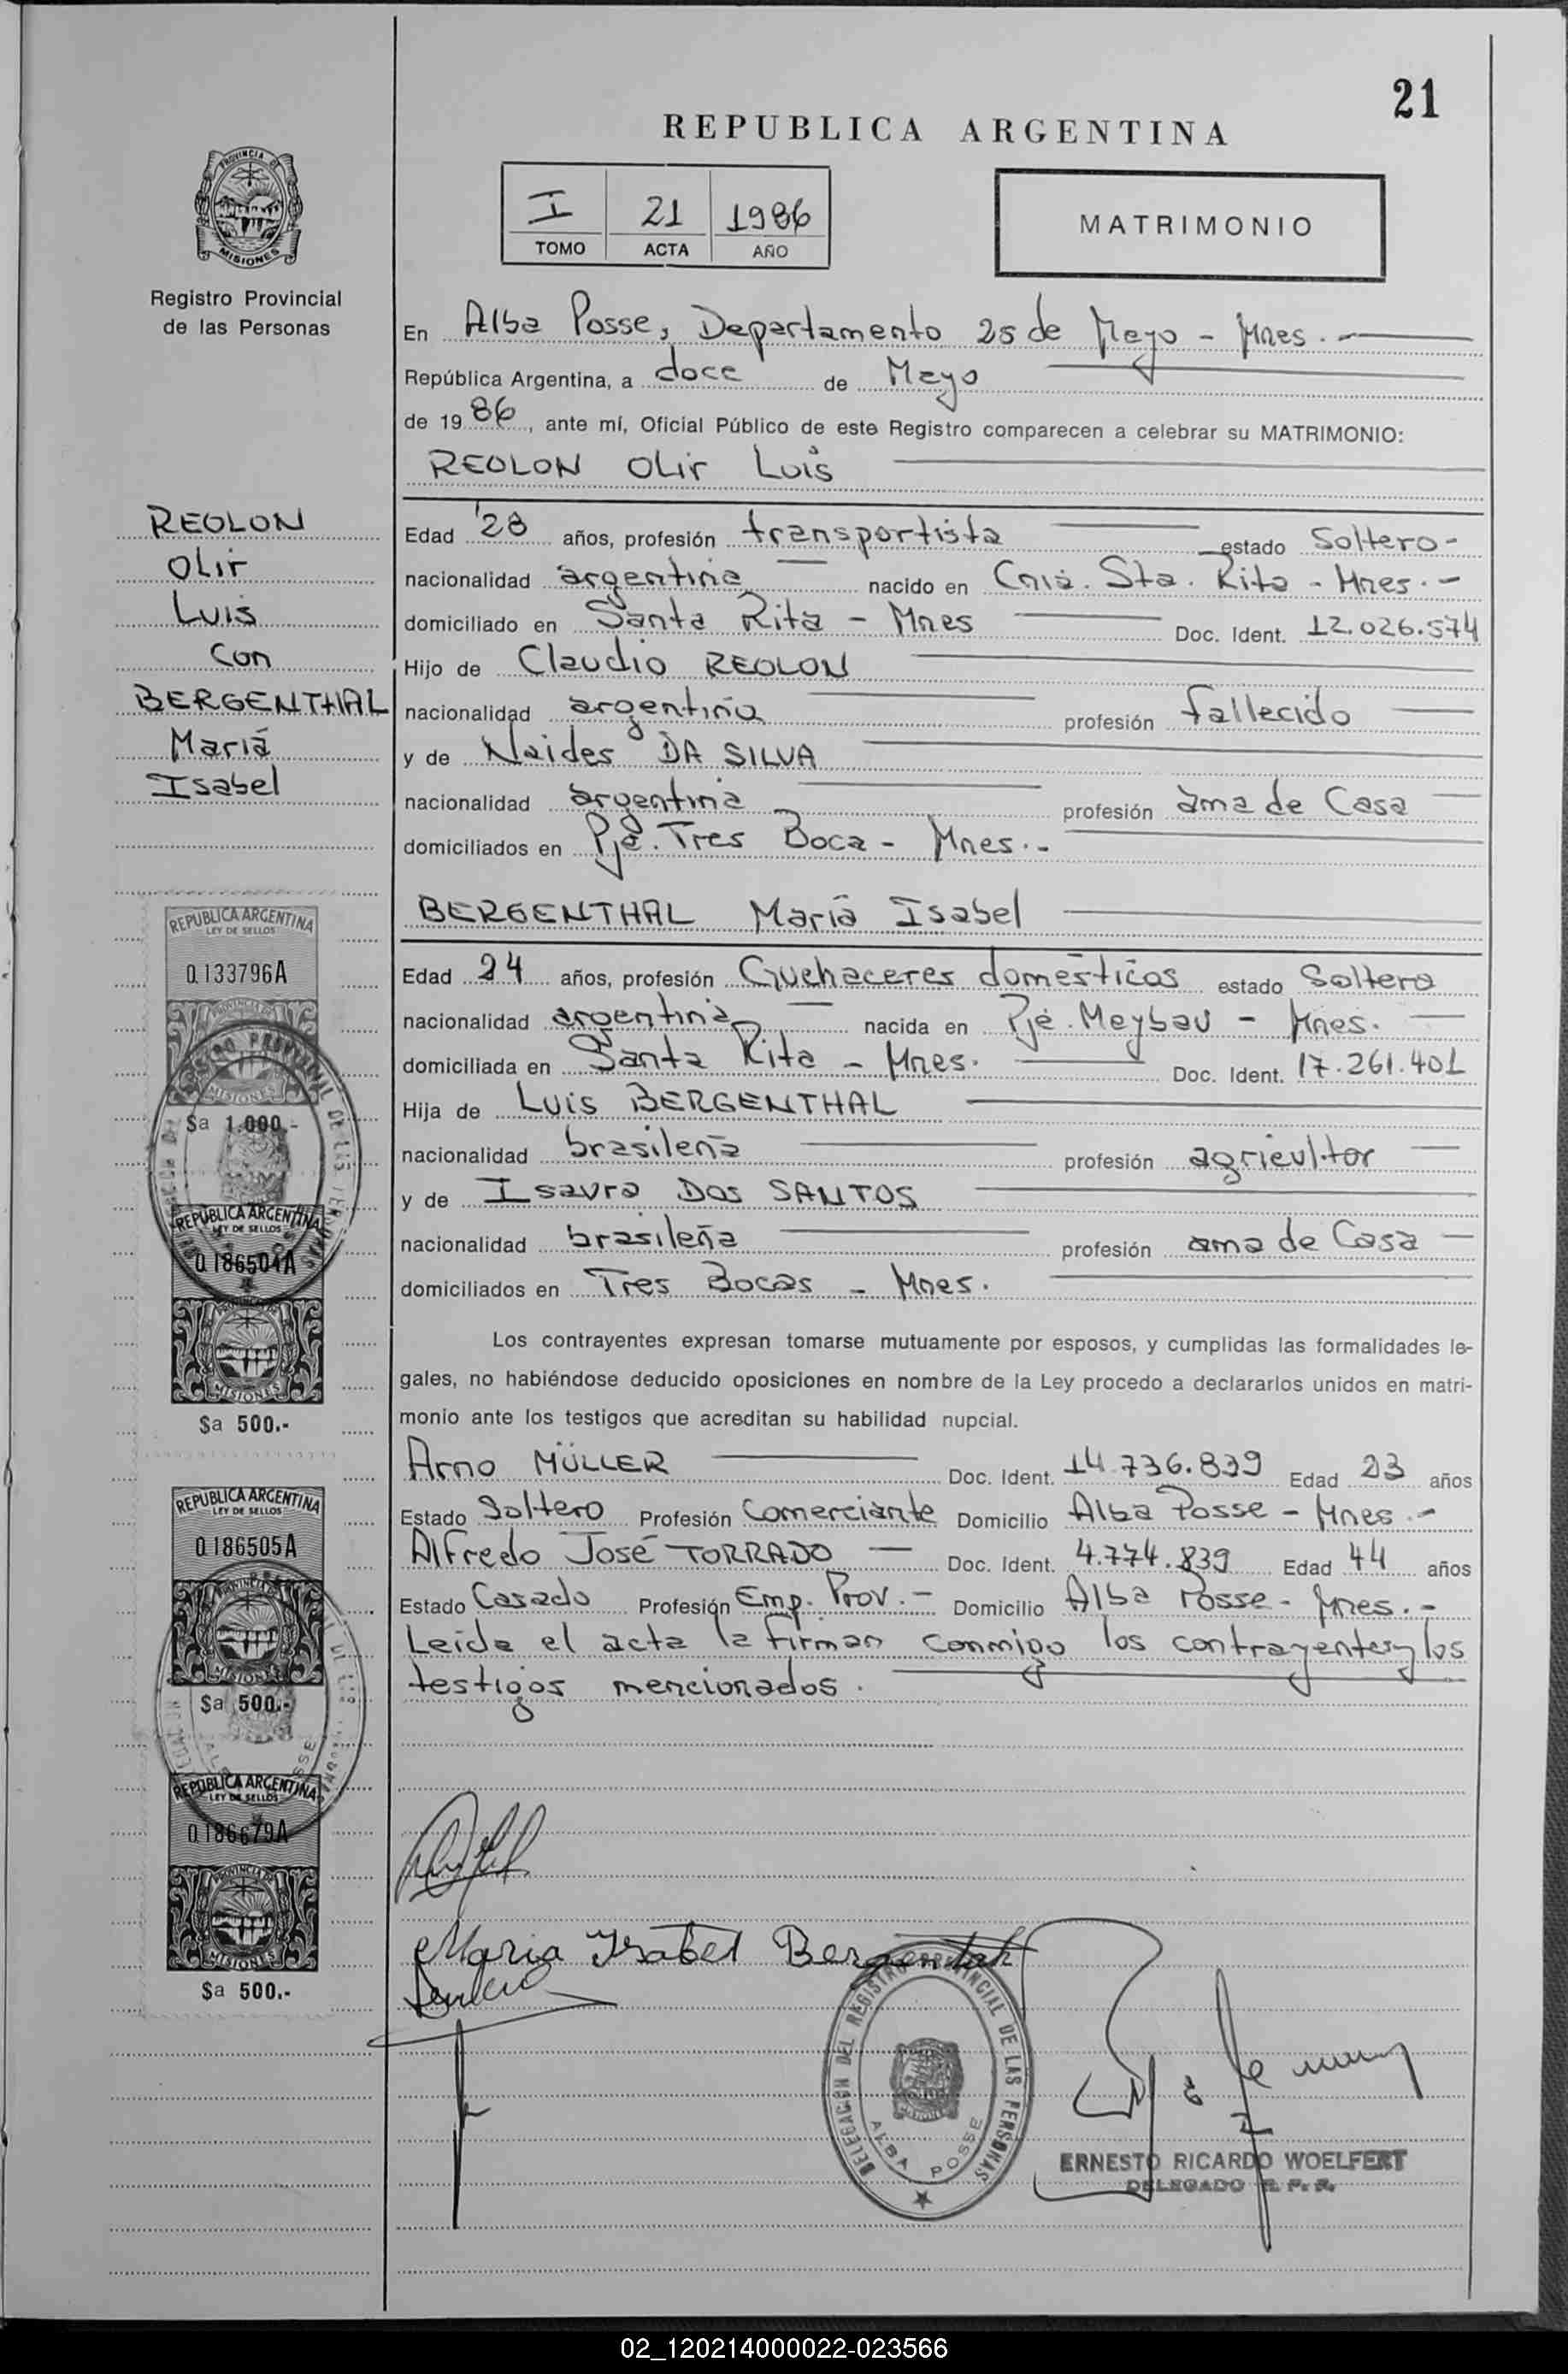 21
REPUBLICA ARGENTINA
I 21 1986
TOMO ACTA AÑO
MATRIMONIO
PROVINCIA DE
MISIONES
Registro Provincial
de las Personas
En Alba Posse, Departamento 25 de Mayo - Mnes. -
República Argentina, a doce de Mayo
de 19 86, ante mí, Oficial Público de este Registro comparecen a celebrar su MATRIMONIO:
REOLON Olir Luis
REOLON
Olir
Luis
Con
BERGENTHAL
Maria
Isabel
Edad 28 años, profesión transportista estado Soltero-
nacionalidad argentina nacido en Cnia. Sta. Rita - Mnes. -
domiciliado en Santa Rita - Mnes Doc. Ident. 12.026.574
Hijo de Claudio REOLON
nacionalidad argentina profesión fallecido
y de Naides DA SILVA
nacionalidad argentina profesión ama de Casa
domiciliados en Pje. Tres Boca - Mnes. -
BERGENTHAL Maria Isabel
Edad 24 años, profesión Quehaceres domésticos estado Soltera
nacionalidad argentina nacida en Pje. Meybau - Mnes.
domiciliada en Santa Rita - Mnes. Doc. Ident. 17.261.401
Hija de Luis BERGENTHAL
nacionalidad brasileña profesión agricultor
y de Isaura DOS SANTOS
nacionalidad brasileña profesión ama de Casa
domiciliados en Tres Bocas - Mnes.
Los contrayentes expresan tomarse mutuamente por esposos, y cumplidas las formalidades le-
gales, no habiéndose deducido oposiciones en nombre de la Ley procedo a declararlos unidos en matri-
monio ante los testigos que acreditan su habilidad nupcial.
Arno MÜLLER Doc. Ident. 14.736.839 Edad 23 años
Estado Soltero Profesión Comerciante Domicilio Alba Posse - Mnes. -
Alfredo José TORRADO Doc. Ident. 4.774.839 Edad 44 años
Estado Casado Profesión Emp. Prov. - Domicilio Alba Posse - Mnes. -
Leida el acta la firman conmigo los contrayentes y los
testigos mencionados.
REPUBLICA ARGENTINA
LEY DE SELLOS
0.133796A
MISIONES
$a 1.000.-
REPUBLICA ARGENTINA
LEY DE SELLOS
0.186504A
MISIONES
$a 500.-
REPUBLICA ARGENTINA
LEY DE SELLOS
0.186505A
PROVINCIA DE
MISIONES
$a 500.-
REPUBLICA ARGENTINA
LEY DE SELLOS
0.186679A
PROVINCIA DE
MISIONES
$a 500.-
Maria Ysabel Bergenthal
DELEGACIÓN DEL REGISTRO PROVINCIAL DE LAS PERSONAS
ALBA POSSE
ERNESTO RICARDO WOELFERT
DELEGADO R. P. P.
02_120214000022-023566